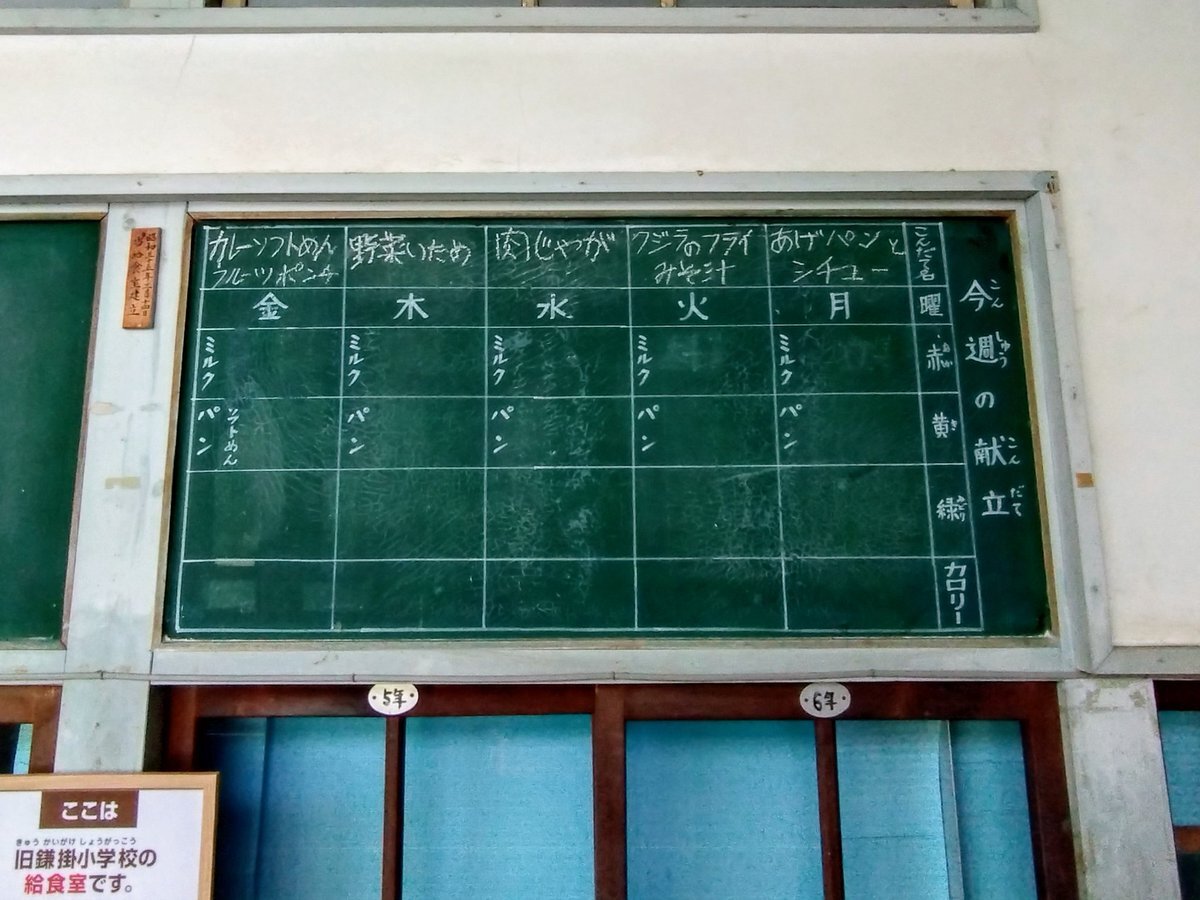 今週の献立
こんしゅう こんだて
こんだて名
あげパンと
シチュー
クジラのフライ
みそ汁
肉じゃが
野菜いため
カレーソフトめん
フルーツポンチ
曜
月
火
水
木
金
赤
あか
ミルク
ミルク
ミルク
ミルク
ミルク
黄
き
パン
パン
パン
パン
パン
ソフトめん
緑
カロリー
5年
6年
ここは
きゅう かいがけ しょうがっこう
旧鎌掛小学校の
給食室です。